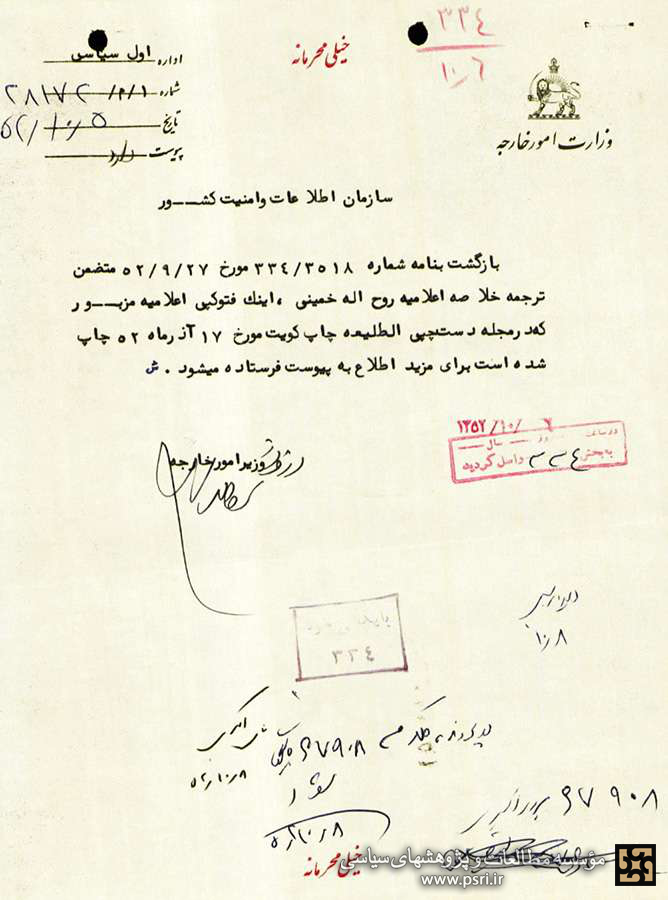 ۳۳۴
۱۰/۶
خیلی محرمانه
اداره اول سیاسی
شماره ۲۸۱۷۲/م/۱
تاریخ ۵۲/۱۰/۵
پیوست دارد
وزارت امور خارجه
سازمان اطلاعات وامنیت کشـــور
بازگشت بنامه شماره ۳۳۴/۳۵۱۸ مورخ ۵۲/۹/۲۷ متضمن
ترجمه خلاصه اعلامیه روح اله خمینی ، اینك فتوکپی اعلامیه مزبـــور
که در مجله دست چپی الطلیعه چاپ کویت مورخ ۱۷ آذرماه ۵۲ چاپ
شده است برای مزید اطلاع به پیوست فرستاده میشود . ش
وزیر امور خارجه
۱۳۵۲/۱۰/۶
به بخش ۳۳۴ واصل گردید
۳۳۴
۸/۱۰
۶۷۹۰۸
۸/۱۰/۵۲
۶۷۹۰۸
۸/۱۰/۵۲
خیلی محرمانه
مؤسسه مطالعات و پژوهشهای سیاسی
www.psri.ir